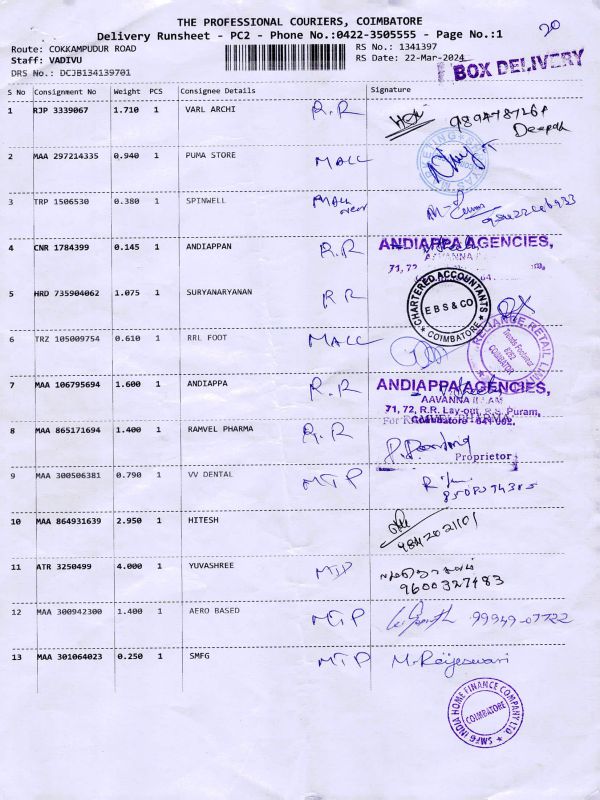 THE PROFESSIONAL COURIERS, COIMBATORE
20
Delivery Runsheet - PC2 - Phone No.:0422-3505555 - Page No.:1
Route: COKKAMPUDUR ROAD
RS No.: 1341397
Staff: VADIVU
RS Date: 22-Mar-2024
BOX DELIVERY
DRS No.: DCJB134139701
S No Consignment No Weight PCS Consignee Details Signature
1 RJP 3339067 1.710 1 VARL ARCHI R.R
Deepak
2 MAA 297214335 0.940 1 PUMA STORE MALL
3 TRP 1506530 0.380 1 SPINWELL MALL
4 CNR 1784399 0.145 1 ANDIAPPAN R.R
ANDIAPPA AGENCIES,
71, 72
5 HRD 735904062 1.075 1 SURYANARYANAN R R
CHARTERED ACCOUNTANTS
EBS & CO
COIMBATORE
6 TRZ 105009754 0.610 1 RRL FOOT MALL
RELIANCE RETAIL LIMITED
COIMBATORE
7 MAA 106795694 1.600 1 ANDIAPPA R.R
ANDIAPPA AGENCIES,
AAVANNA ILLAM
71, 72, R.R. Lay-out, R.S. Puram,
Coimbatore - 641 002.
8 MAA 865171694 1.400 1 RAMVEL PHARMA R.R
For RAMVEL PHARMA
Proprietor
9 MAA 300506381 0.790 1 VV DENTAL MTP
10 MAA 864931639 2.950 1 HITESH
9842021101
11 ATR 3250499 4.000 1 YUVASHREE MTP
9600327483
12 MAA 300942300 1.400 1 AERO BASED MTP
99949-07722
13 MAA 301064023 0.250 1 SMFG MTP M. Raijeswari
SMFG INDIA HOME FINANCE COMPANY LTD.
COIMBATORE